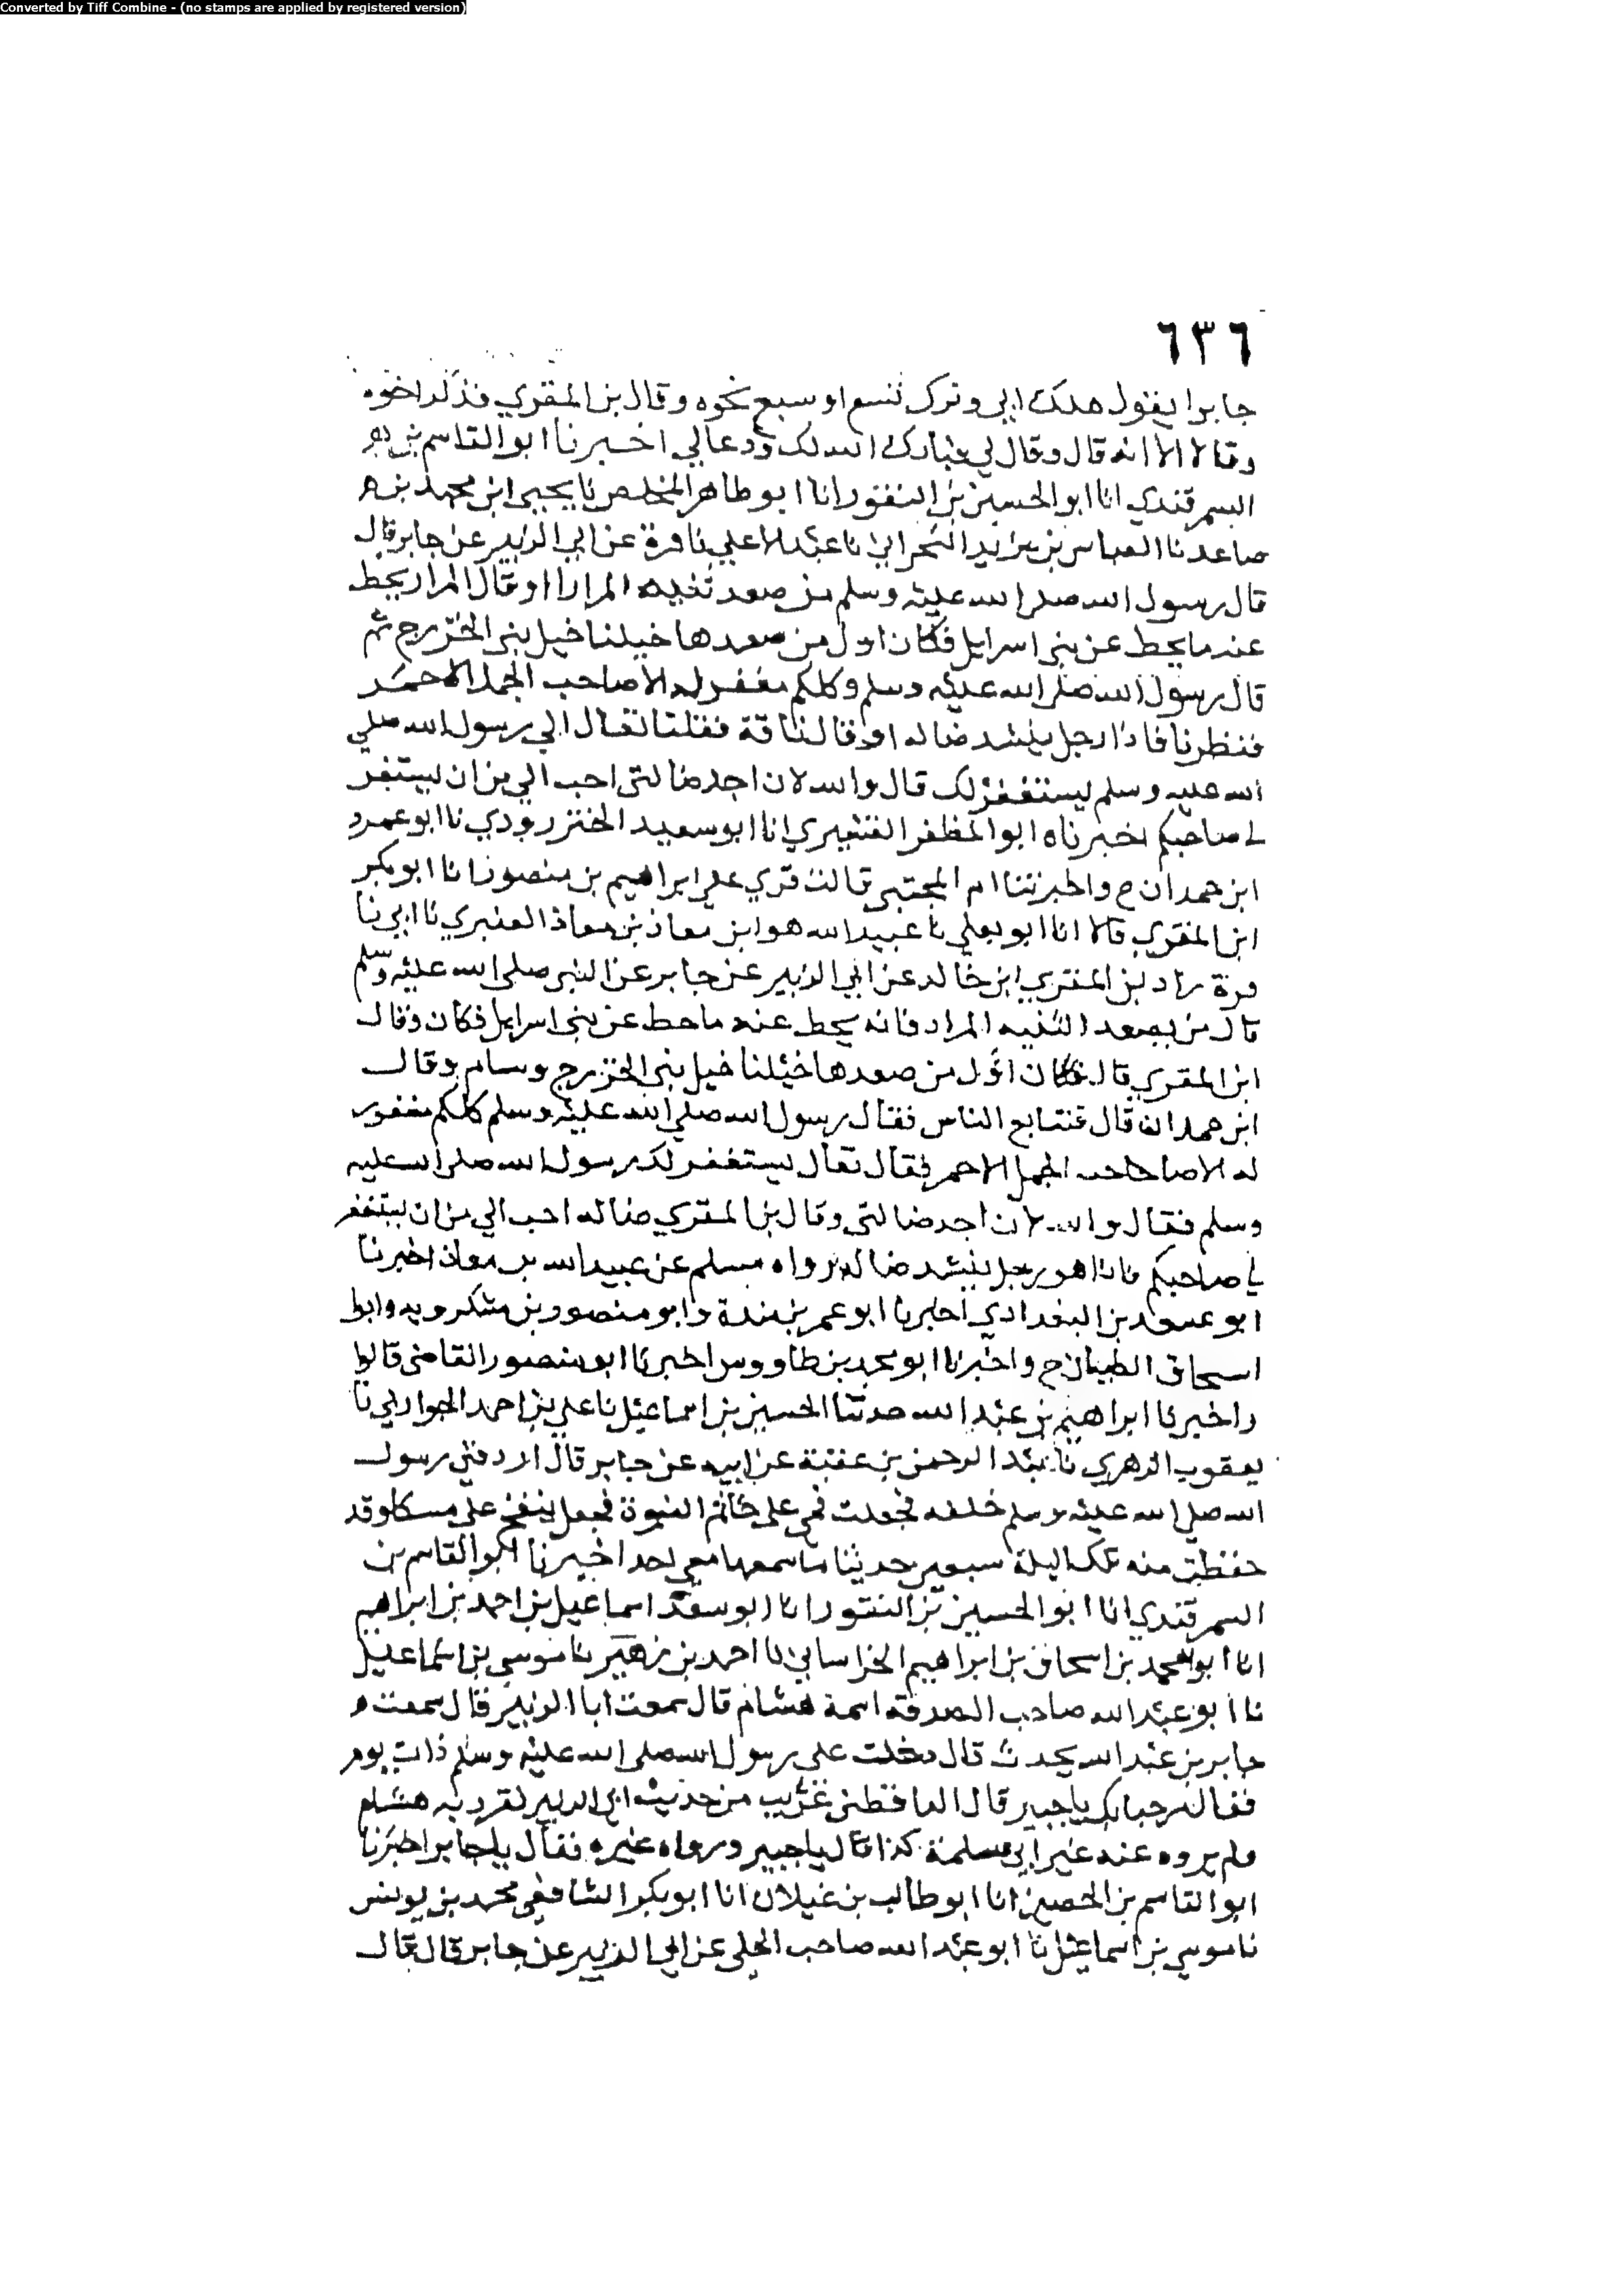 Converted by Tiff Combine - (no stamps are applied by registered version)
٦٣٦
جابرا يقول هلك ابي وترك تسع او سبع نحوه وقال بن المقري فذكر اخوه
وقالا الا انه قال وقال لي فبارك الله لك ودعا لي اخبرنا ابو القاسم بن
السمرقندي انا ابو الحسين بن النقور انا ابو طاهر المخلص نا يحيى ابن محمد بن
صاعد نا العباس بن يزيد البحراني نا عبد الاعلي نا قرة عن ابي الزبير عن جابر قال
قال رسول الله صلى الله عليه وسلم من صعد ثنيه المرار او قال المرار يحط
عنه ما يحط عن بني اسرايل فكان اول من صعدها خيلنا خيل بني الخزرج ثم
قال رسول الله صلى الله عليه وسلم وكلكم مغفر له الا صاحب الجمل الاحمر
فنظرنا فاذا رجل ينشد ضاله او قال ناقة فقلنا تعال الي رسول الله صلي
الله عليه وسلم يستغفر لك قال والله لان اجد ضالتي احب الي من ان يستغفر
لي صاحبكم اخبرناه ابو المظفر القشيري انا ابو سعيد الخنزرودي نا ابو عمرو
ابن حمدان ح واخبرتنا ام المجتبى قالت قري علي ابراهيم بن منصور انا ابو بكر
ابن المقري قالا انا ابو يعلي نا عبيد الله هو ابن معاذ بن معاذ العنبري نا ابي نا
قرة زاد بن المقري ابن خالد عن ابي الزبير عن جابر عن النبي صلى الله عليه وسلم
قال من يصعد الثنيه المرار فانه يحط عنه ما حط عن بني اسرايل فكان وقال
ابن المقري قال فكان اول من صعدها خيلنا خيل بني الخزرج وسام وقال
ابن حمدان قال فتتابع الناس فقال رسول الله صلي الله عليه وسلم كلكم مغفور
له الا صاحب الجمل الاحمر فقال تعال يستغفر لك رسول الله صلى الله عليه
وسلم فقال والله لان اجد ضالتي وقال بن المقري ضاله احب الي من ان يستغفر
لي صاحبكم فاذا هو رجل ينشد ضاله رواه مسلم عن عبيد الله بن معاذ اخبرنا
ابو سعد بن البغدادي اخبرنا ابو عمر بن مندة وابو منصور بن شكرويه وابو
اسحاق الطيان ح واخبرنا ابو محمد بن طاووس اخبرنا ابو منصور القاضي قالوا
اخبرنا ابراهيم بن عبد الله حدثنا الحسين بن اسماعيل نا علي بن احمد الجواربي نا
يعقوب الزهري نا عبد الرحمن بن عقبة عن ابيه عن جابر قال اردفني رسول
الله صلي الله عليه وسلم خلفه فجعلت فمي علي خاتم النبوة فجعل ينفح علي مسكا وقد
حفظت منه تلك الليلة سبعين حديثا ما سمعها معي احد اخبرنا ابو القاسم بن
السمرقندي انا ابو الحسين بن النقور انا ابو سعد اسماعيل بن احمد بن ابراهيم
انا ابو محمد بن اسحاق بن ابراهيم الخراساني نا احمد بن زهير نا موسي بن اسماعيل
نا ابو عبد الله صاحب الصدقه اسمه هشام قال سمعت ابا الزبير قال سمعت
جابر بن عبد الله يحدث قال دخلت علي رسول الله صلى الله عليه وسلم ذات يوم
فقال مرحبا بك يا جبير قال الدارقطني غريب من حديث ابي الزبير تفرد به هشام
ولم يروه عنه غير ابي سلمة كذا قال يا جبير ورواه غيره فقال يا جابر اخبرنا
ابو القاسم بن الحصين انا ابو طالب بن غيلان انا ابو بكر الشافعي محمد بن يونس
نا موسي بن اسماعيل نا ابو عبد الله صاحب الحلي عن ابي الزبير عن جابر قال قال